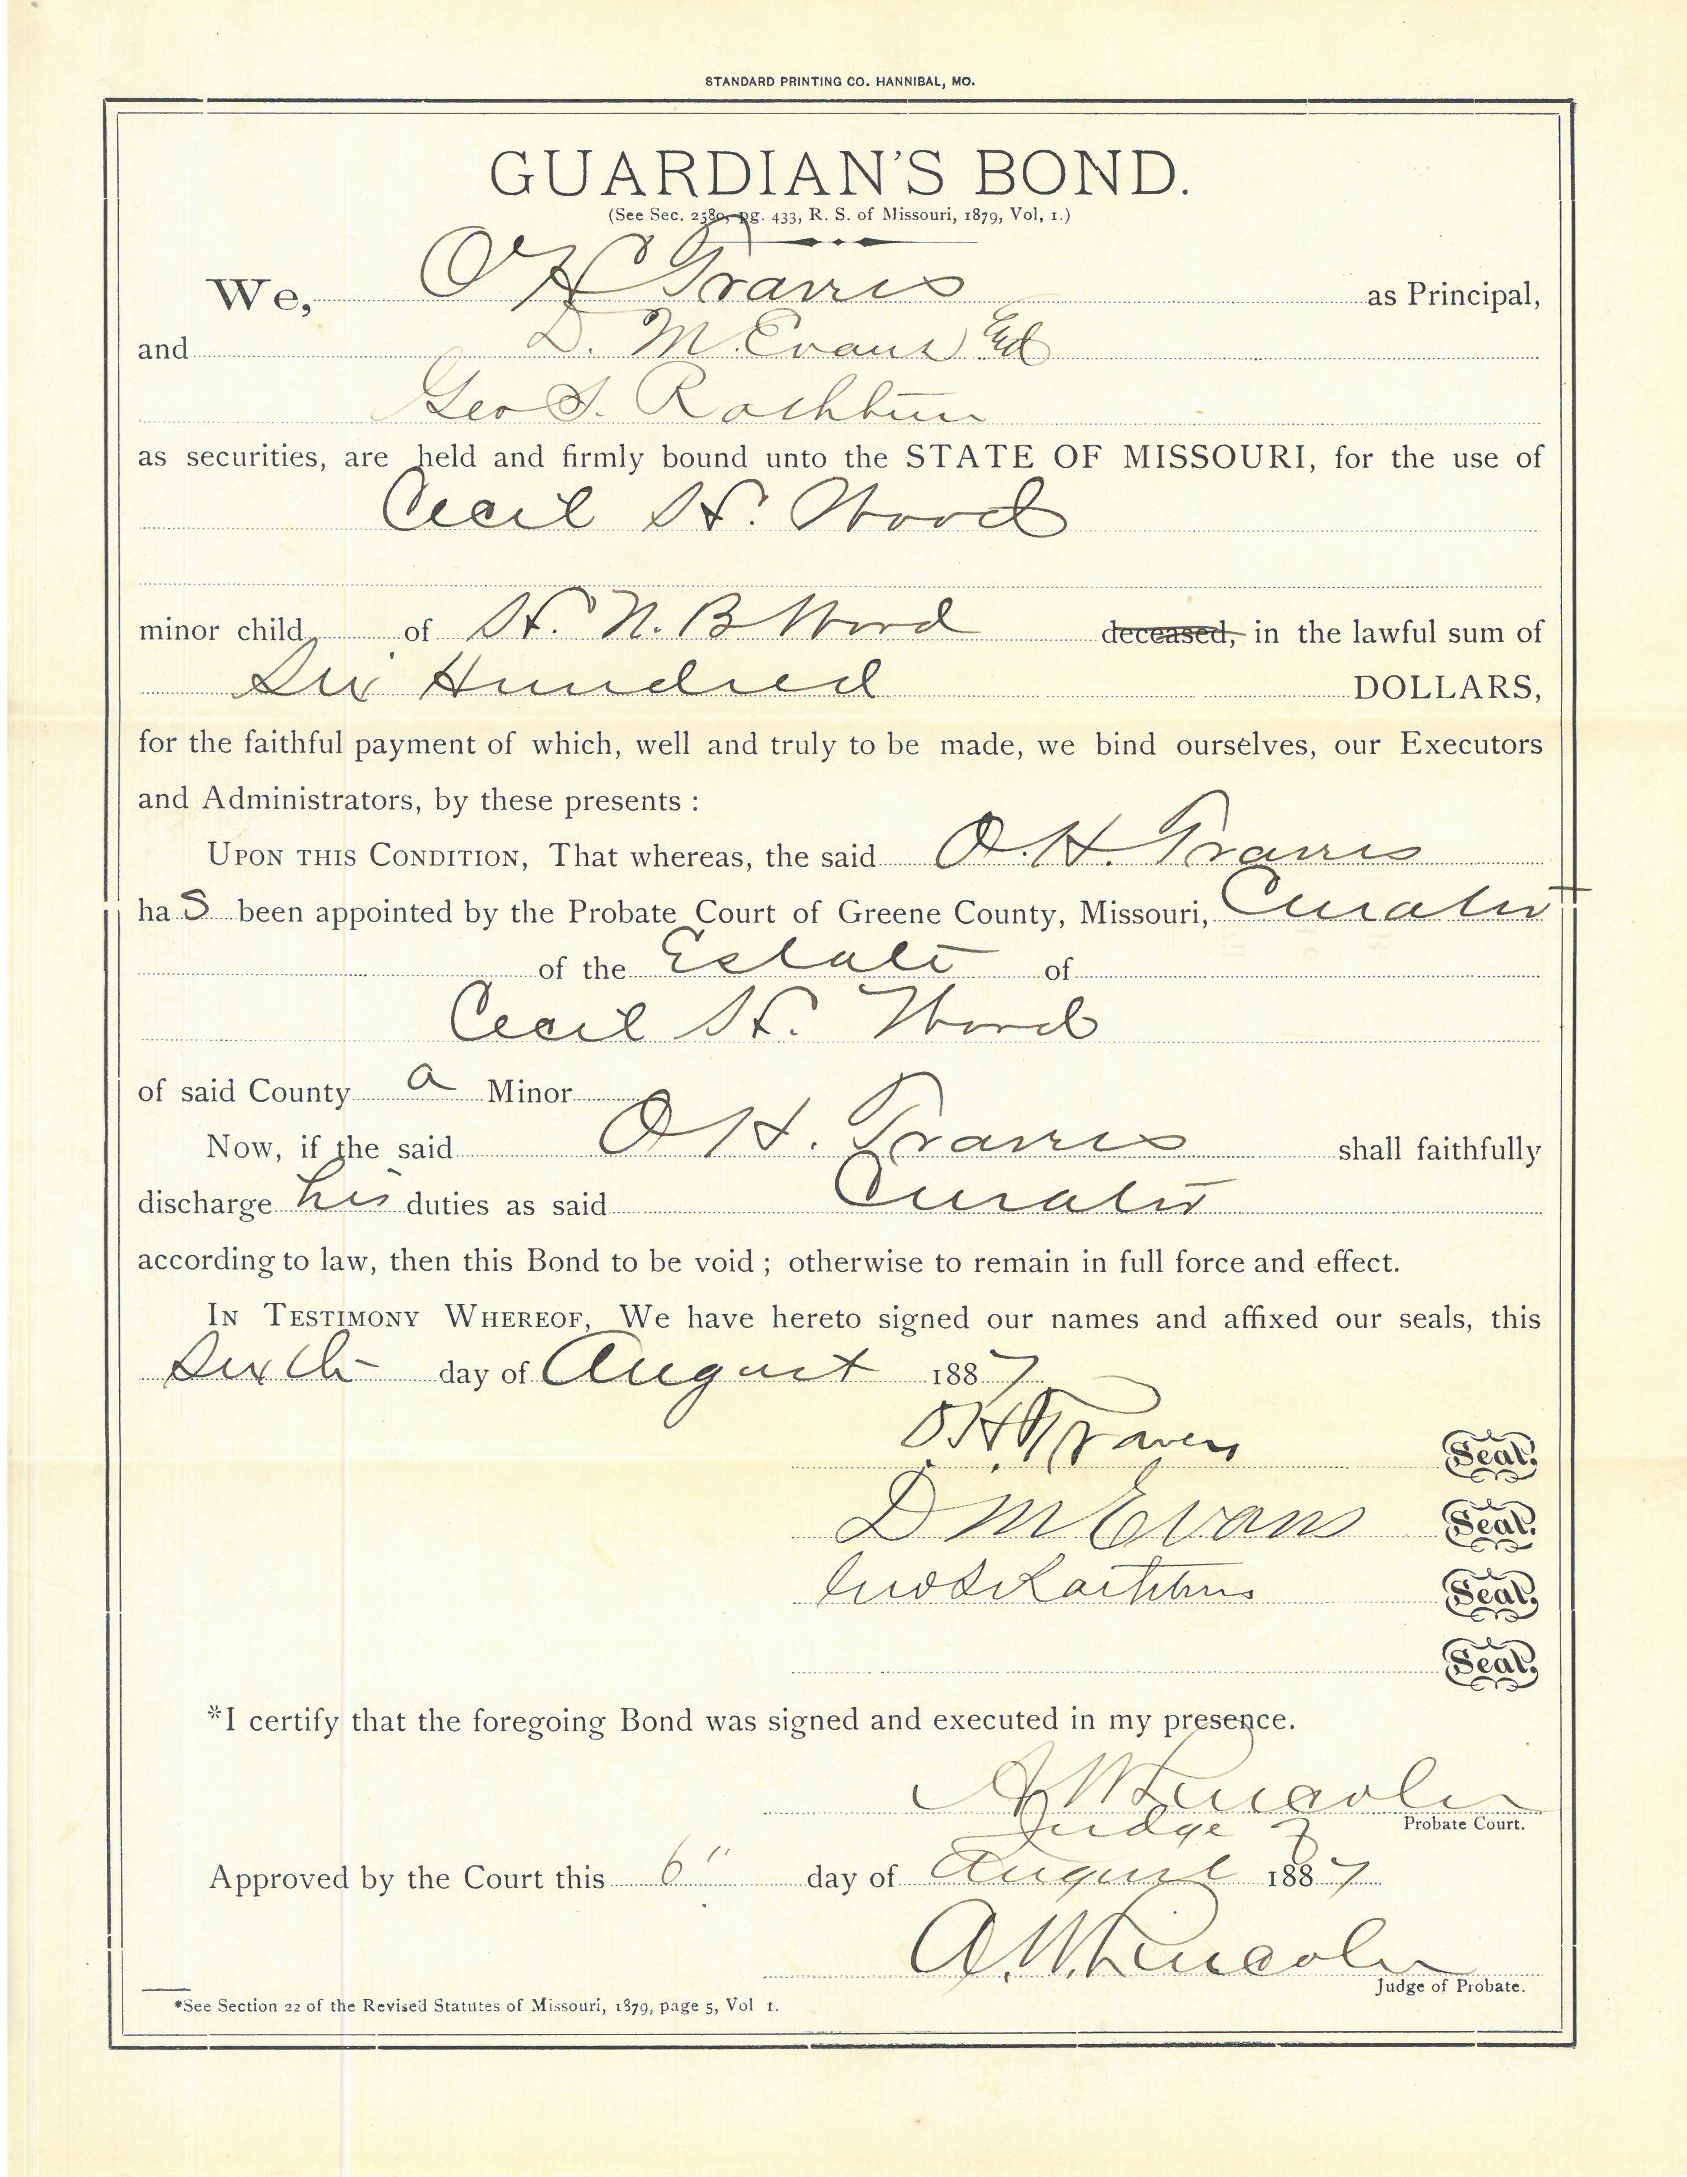 STANDARD PRINTING CO. HANNIBAL, MO.
GUARDIAN'S BOND.
(See Sec. 2580, pg. 433, R. S. of Missouri, 1879, Vol, 1.)
We, O H Travers as Principal,
and D. M. Evans and
Geo S. Rathbun
as securities, are held and firmly bound unto the STATE OF MISSOURI, for the use of
Cecil H. Wood
minor child of H. N. B Wood deceased, in the lawful sum of
Six Hundred DOLLARS,
for the faithful payment of which, well and truly to be made, we bind ourselves, our Executors
and Administrators, by these presents :
UPON THIS CONDITION, That whereas, the said O. H. Travers
has been appointed by the Probate Court of Greene County, Missouri, Curator
of the Estate of
Cecil H. Wood
of said County a Minor
Now, if the said O H. Travers shall faithfully
discharge his duties as said Curator
according to law, then this Bond to be void ; otherwise to remain in full force and effect.
IN TESTIMONY WHEREOF, We have hereto signed our names and affixed our seals, this
Sixth day of August 1887
O. H. Travers Seal.
D M Evans Seal.
Geo S Rathbun Seal.
Seal.
*I certify that the foregoing Bond was signed and executed in my presence.
A W Lincoln
Judge of Probate Court.
Approved by the Court this 6" day of August 1887
A. W. Lincoln
Judge of Probate.
*See Section 22 of the Revised Statutes of Missouri, 1879, page 5, Vol 1.